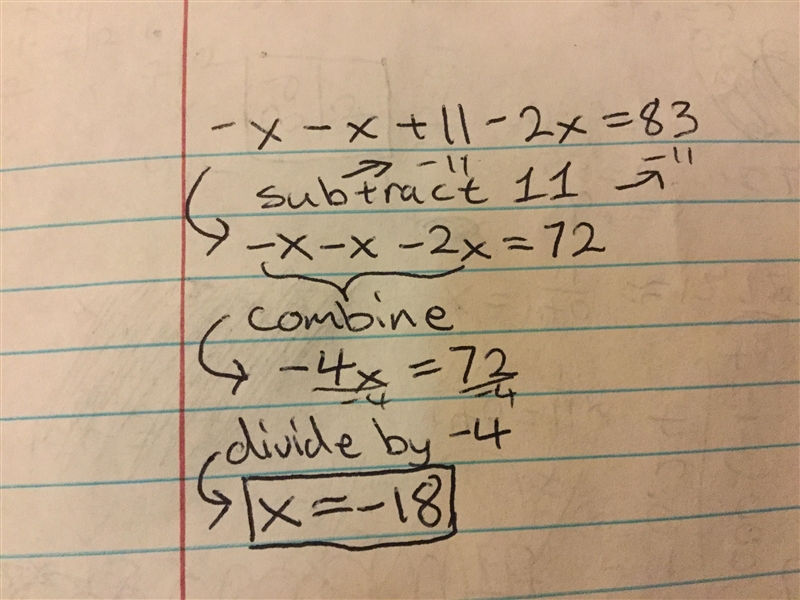 -x-x+11-2x=83
-11 -11
subtract 11
-x-x-2x=72
combine
-4x=72
-4 -4
divide by -4
x=-18